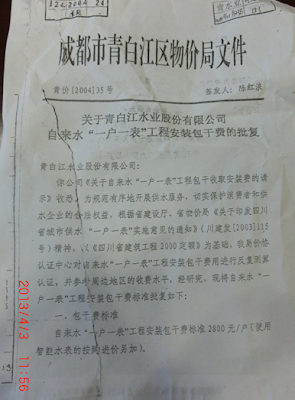 成都市青白江区物价局文件
青价[2004]35号
签发人：陈红滨
关于青白江水业股份有限公司
自来水“一户一表”工程安装包干费的批复
青白江水业股份有限公司：
你公司《关于自来水“一户一表”工程包干收取安装费的请
求》收悉。为规范有序地开展供水服务，切实保护消费者和供
水企业的合法权益，根据省建设厅、省物价局《关于印发四川
省城市供水“一户一表”实施意见的通知》（川建发[2003]115
号）精神，以《四川省建筑工程2000定额》为基础，我局价格
认证中心对自来水“一户一表”工程安装费用进行反复测算
认证，并参照周边地区的收费水平，经研究，现将自来水“一
户一表”工程安装包干费标准批复如下：
一、包干费标准
自来水“一户一表”工程安装包干费标准2800元/户（使用
智能水表的按同进价另加）。
2013/4/3 11:56